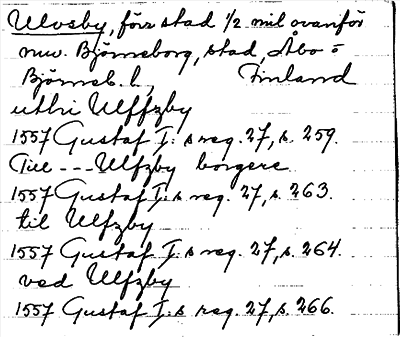 Ulvsby, förr stad 1/2 mil ovanför
nuv. Björneborg, stad, Åbo o
Björneb. l., Finland
uthi Ulffzby
1557 Gustaf I:s reg. 27, s. 259.
Till --- Ulfzby borgere
1557 Gustaf I:s reg. 27, s. 263.
til Ulfzby
1557 Gustaf I:s reg. 27, s. 264.
ved Ulfzby
1557 Gustaf I:s reg. 27, s. 266.